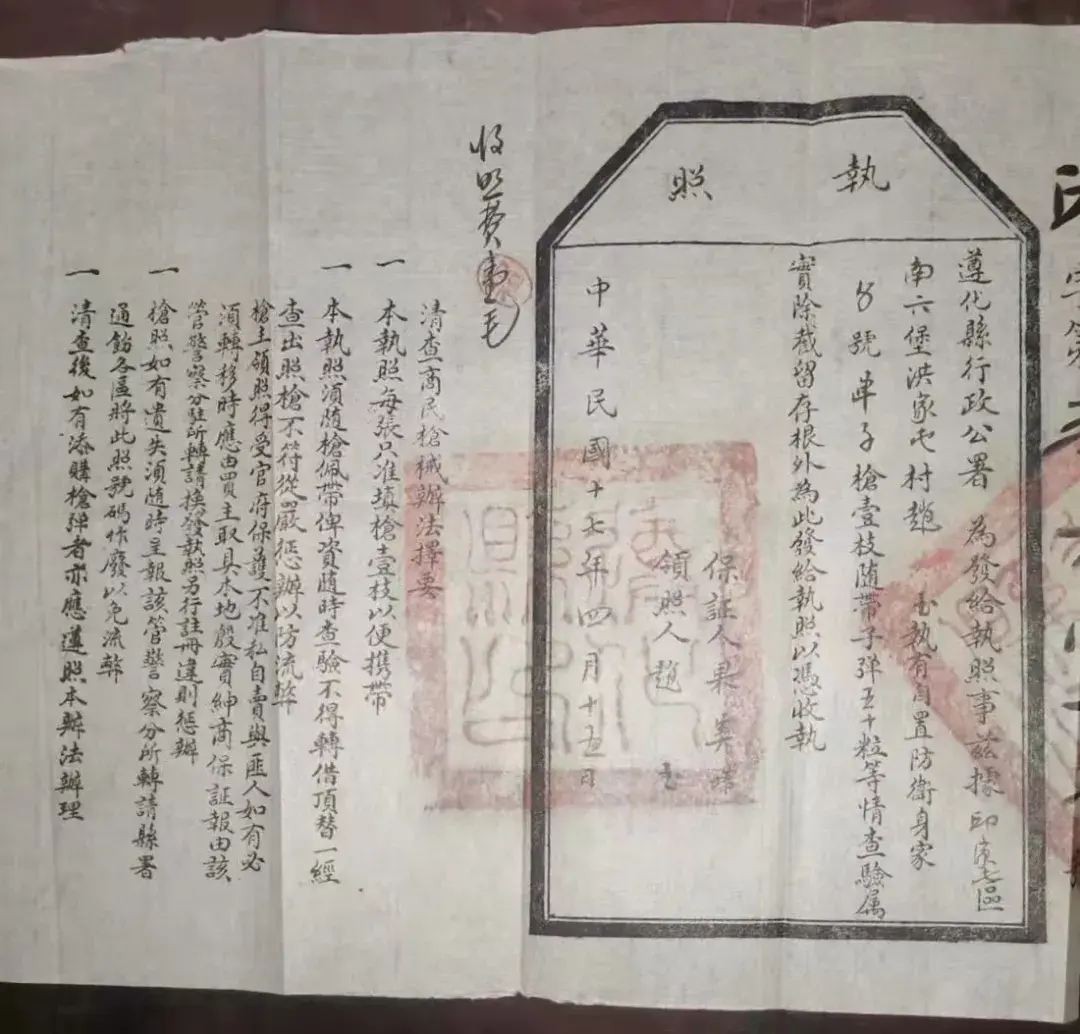 執照
遵化縣行政公署 為發給執照事茲據印 區
南六堡洪家屯村趙 玉執有自置防衛身家
號 子槍壹枝随帶子弹五十粒等情查驗属
實除截留存根外為此發給執照以憑收執
保証人果
領照人趙 玉
中華民國十七年四月十五日
收照費壹毛
清查商民槍械辦法擇要
一 本執照每張只准填槍壹枝以便携帶
一 本執照須随槍佩帶俾資随時查驗不得轉借頂替一經
查出照槍不符從嚴惩辦以防流弊
槍主領照得受官府保護不准私自賣與匪人如有必
須轉移時應由買主取具本地殷實紳商保証報由該
管警察分駐所轉請換發執照另行註冊違則惩辦
一 槍照如有遺失須随時主報該管警察分所轉請縣署
通飭各區將此照號碼作廢以免流弊
一 清查後如有添購槍弹者亦應遵照本辦法辦理